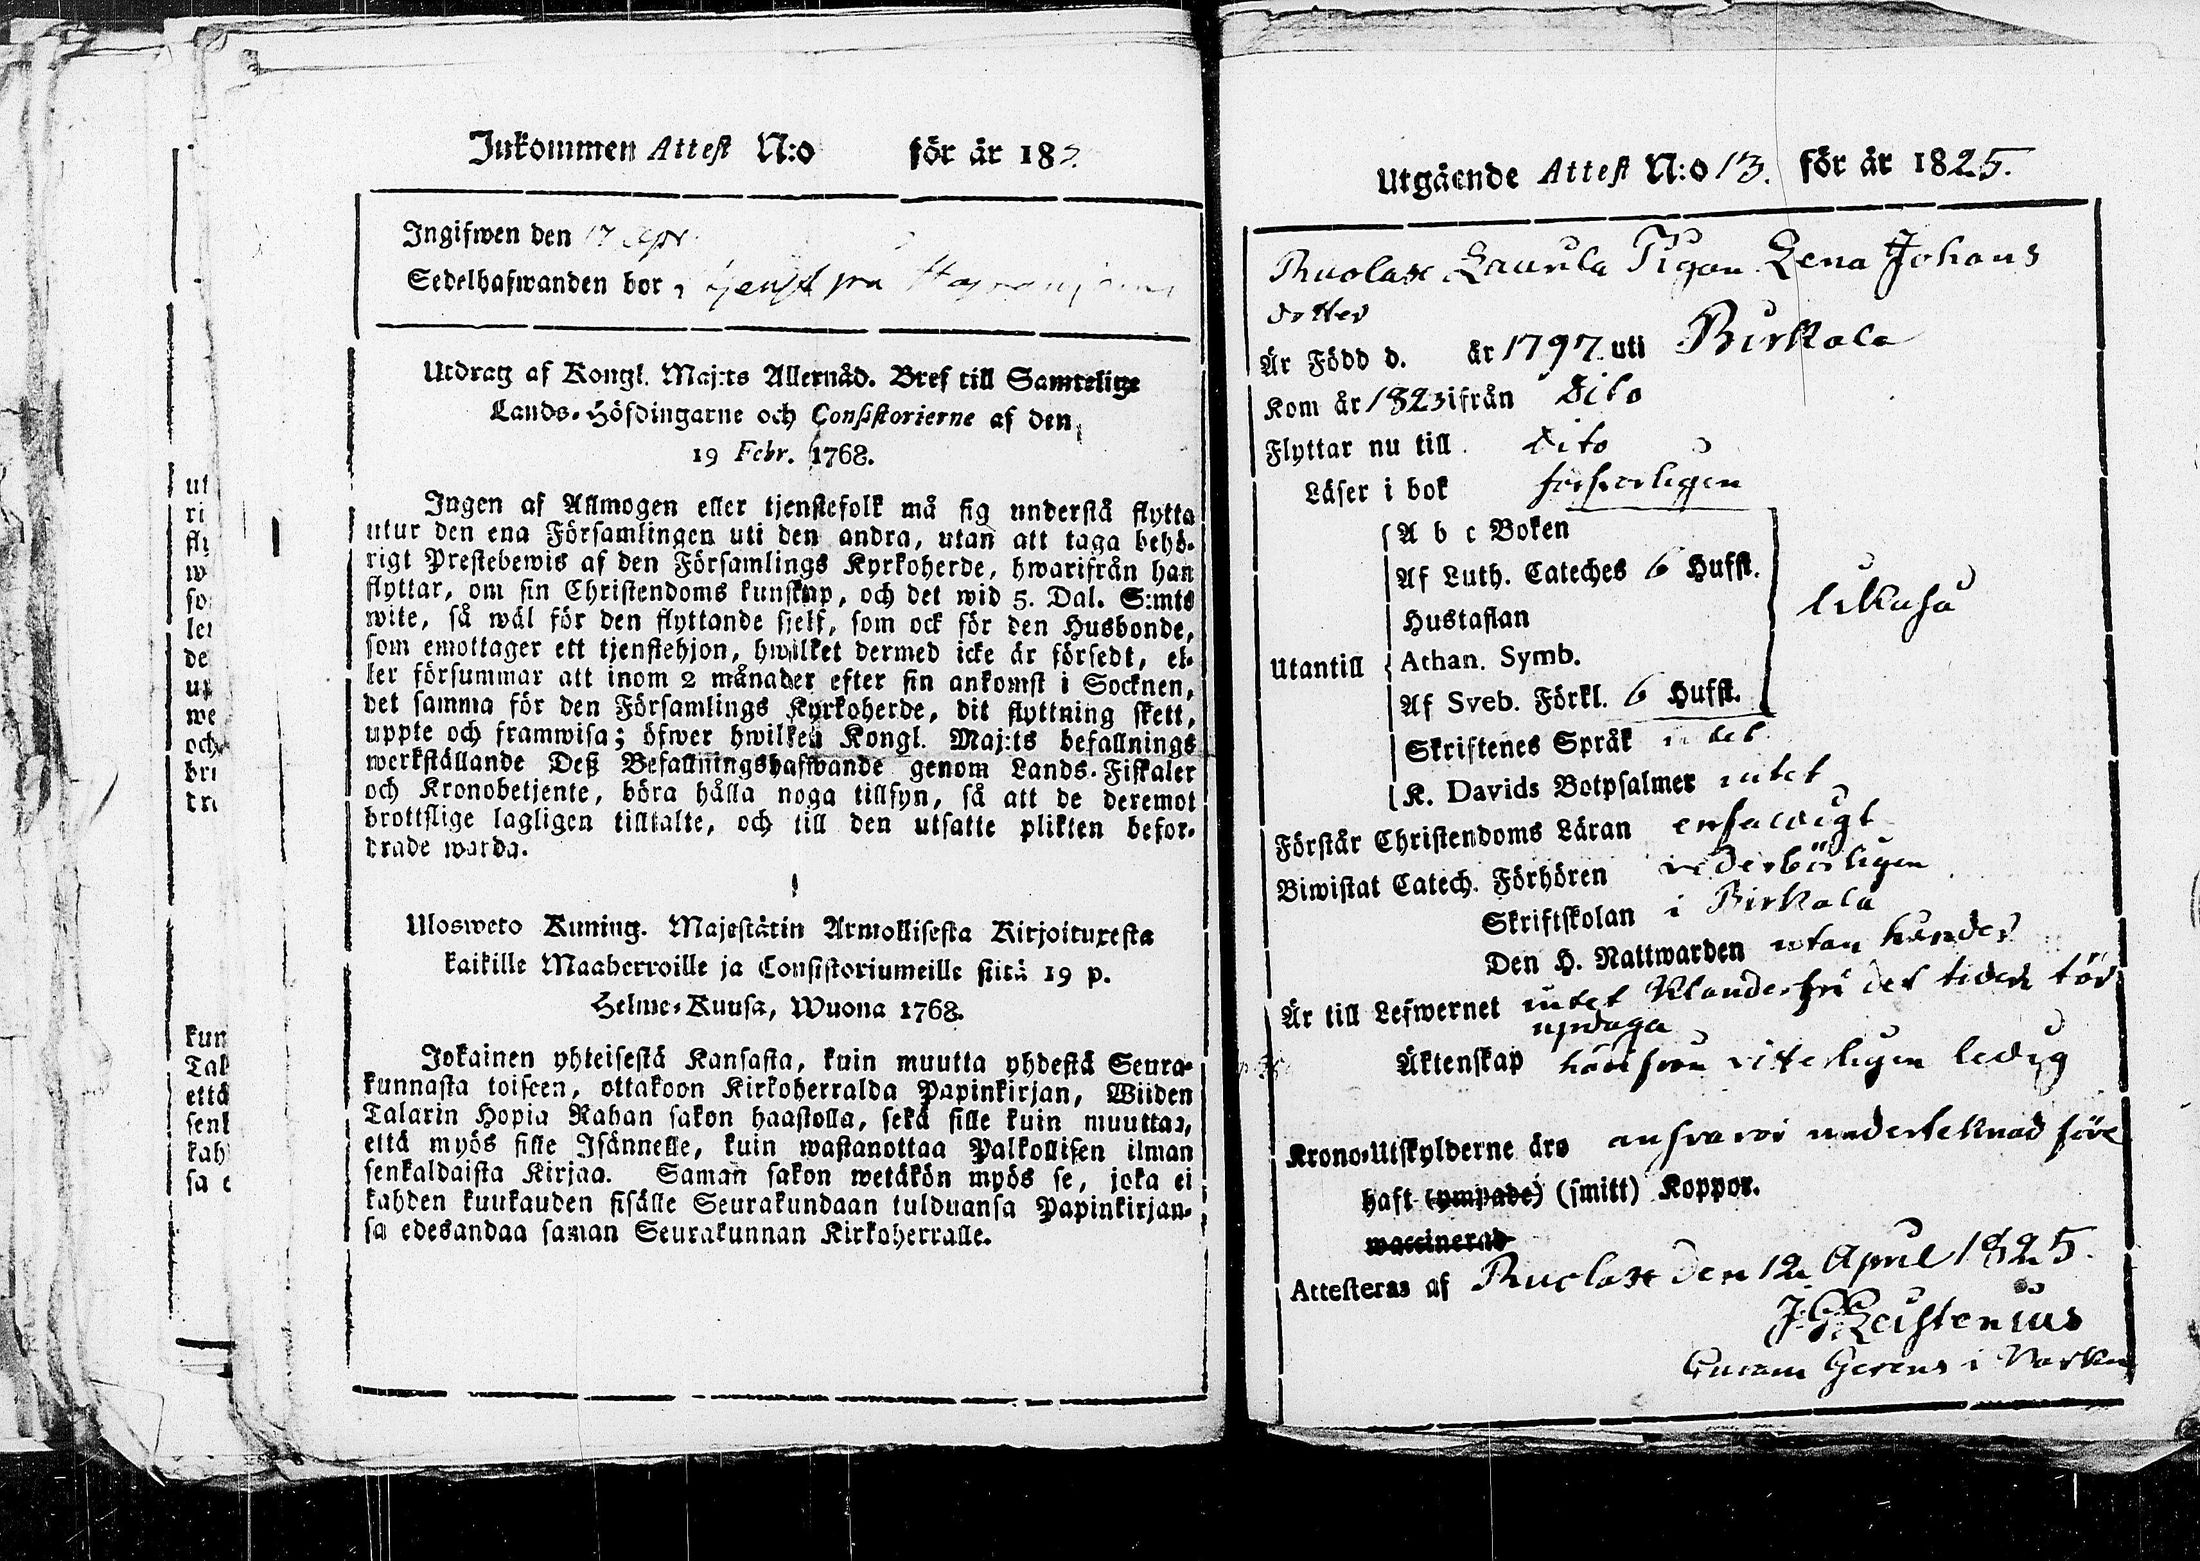 Inkommen Attest N:o för år 182
Ingifwen den 17 Apr.
Sedelhafwanden bor
Utdrag af Kongl. Maj:ts Allernåd. Bref till Samtelige
Lands-Höfdingarne och Consistorierne af den
19 Febr. 1768.
Ingen af Allmogen eller tjenstefolk må sig understå flytta
utur den ena Församlingen uti den andra, utan att taga behö-
rigt Prestebewis af den Församlings Kyrkoherde, hwarifrån han
flyttar, om sin Christendoms kunskap, och det wid 5. Dal. S:mts
wite, så wäl för den flyttande sjelf, som ock för den Husbonde,
som emottager ett tjenstehjon, hwilket dermed icke är försedt, el-
ler försummar att inom 2 månader efter sin ankomst i Socknen,
det samma för den Församlings Kyrkoherde, dit flyttning skett,
uppte och framwisa; öfwer hwilken Kongl. Maj:ts befallnings
werkställande Deß Befallningshafwande genom Lands-Fiskaler
och Kronobetjente, böra hålla noga tillsyn, så att de deremot
brottslige lagligen tilltalte, och till den utsatte plikten befor-
drade warda.
Ulosweto Kuning. Majestätin Armollisesta Kirjoituxesta
kaikille Maaherroille ja Consistoriumeille siitä 19 p.
Helme-Kuusa, Wuona 1768.
Jokainen yhteisestä Kansasta, kuin muutta yhdestä Seura-
kunnasta toiseen, ottakoon Kirkoherralda Papinkirjan, Wiiden
Talarin Hopia Rahan sakon haastolla, sekä sille kuin muuttaa,
että myös sille Isännelle, kuin wastanottaa Palkollisen ilman
senkaldaista Kirjaa. Saman sakon wetäkön myös se, joka ei
kahden kuukauden sisälle Seurakundaan tulduansa Papinkirjan-
sa edesandaa saman Seurakunnan Kirkoherralle.
Utgående Attest N:o 13. för år 1825.
Ruolax Laurila Pigan Lena Johans
dotter
Är Född d. år 1797 uti Birkala
Kom år 1823 ifrån dito
Flyttar nu till dito
Läser i bok försvarligen
A b c Boken
Af Luth. Cateches 6 Hufst.
Hustaflan
likaså
Utantill Athan. Symb.
Af Sveb. Förkl. 6 Hufst.
Skriftenes Språk intet
K. Davids Botpsalmer intet
Förstår Christendoms Läran enfaldigt
Biwistat Catech. Förhören wederbörligen
Skriftskolan i Birkala
Den H. Nattwarden utan hinder
Är till Lefwernet intet klanderfri det tiden tör
updaga
Äktenskap härifrån witterligen ledig
Krono-Utskylderne äro ansvarar undertecknad före
haft (ympade) (smitt) Koppor.
waccinerad
Attesteras af Ruolax den 12 April 1825.
Curam Gerens i